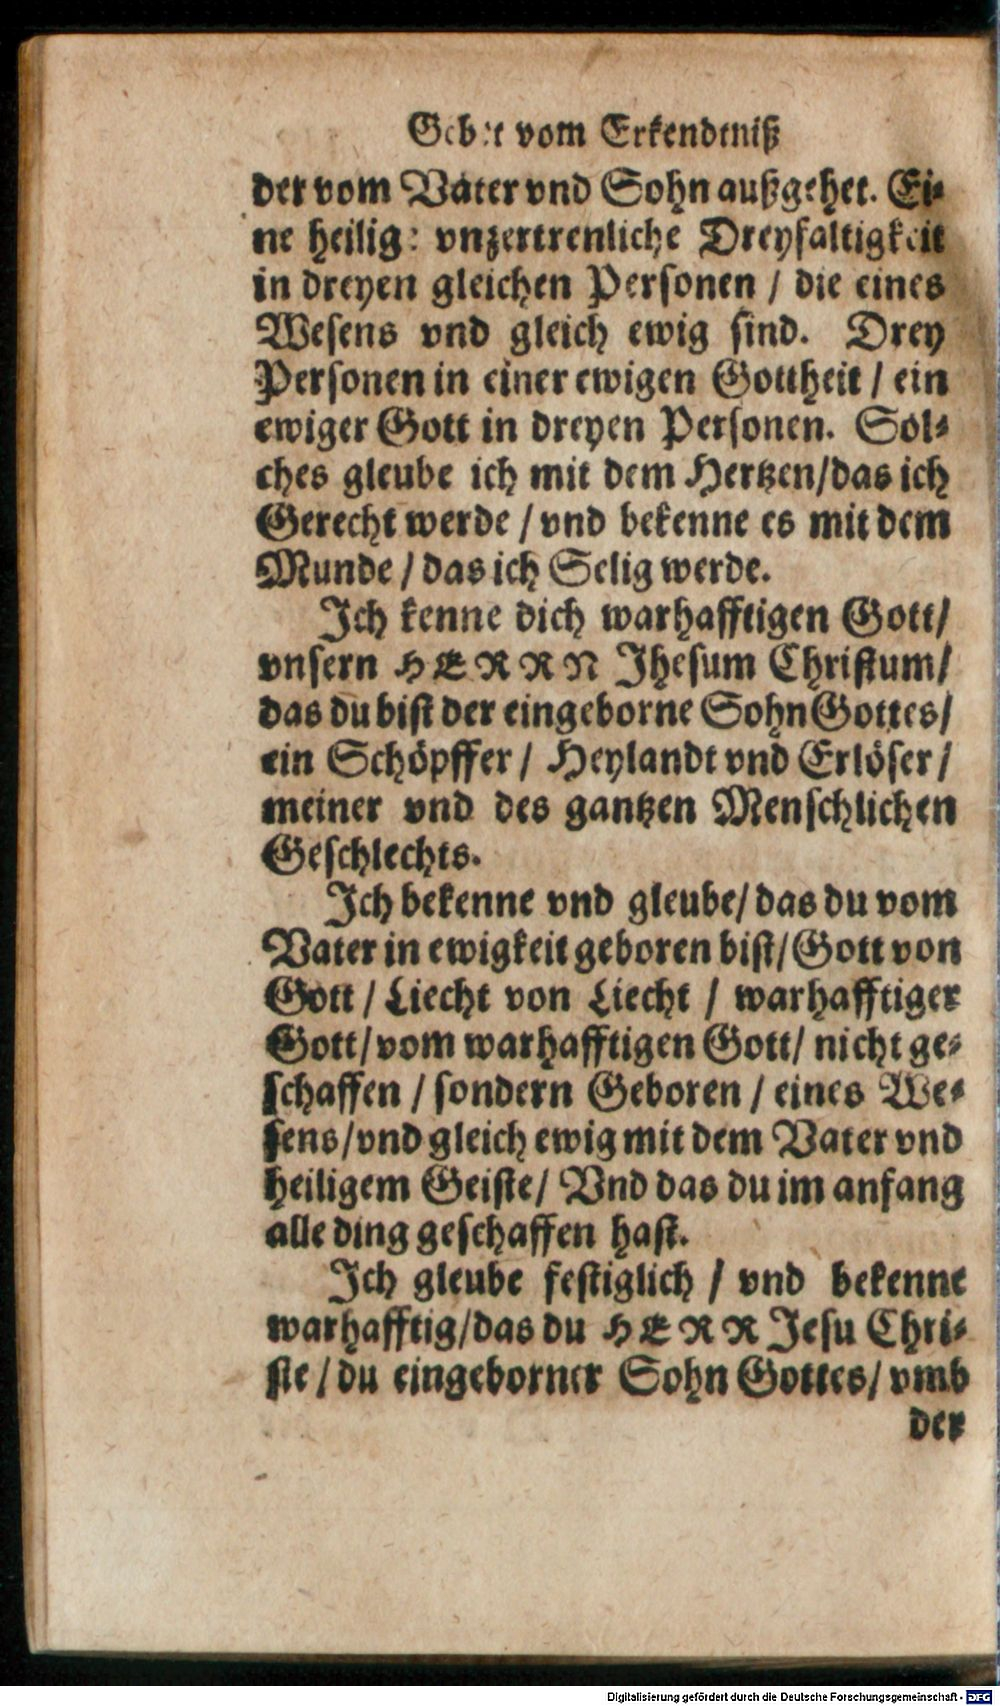 Gebet vom Erkendtniß
der vom Vater vnd Sohn außgehet. Ei-
ne heilige vnzertrenliche Dreyfaltigkeit
in dreyen gleichen Personen / die eines
Wesens vnd gleich ewig sind. Drey
Personen in einer ewigen Gottheit / ein
ewiger Gott in dreyen Personen. Sol-
ches gleube ich mit dem Hertzen/das ich
Gerecht werde / vnd bekenne es mit dem
Munde / das ich Selig werde.
Ich kenne dich warhafftigen Gott/
vnsern HERRN Jhesum Christum/
das du bist der eingeborne Sohn Gottes/
ein Schöpffer / Heylandt vnd Erlöser /
meiner vnd des gantzen Menschlichen
Geschlechts.
Ich bekenne vnd gleube/ das du vom
Vater in ewigkeit geboren bist/ Gott von
Gott / Liecht von Liecht / warhafftiger
Gott/ vom warhafftigen Gott/ nicht ge-
schaffen / sondern Geboren / eines We-
sens/vnd gleich ewig mit dem Vater vnd
heiligem Geiste/ Vnd das du im anfang
alle ding geschaffen hast.
Ich gleube festiglich / vnd bekenne
warhafftig/das du HERR Jesu Chri-
ste / du eingeborner Sohn Gottes/ vmb
der
Digitalisierung gefördert durch die Deutsche Forschungsgemeinschaft - DFG